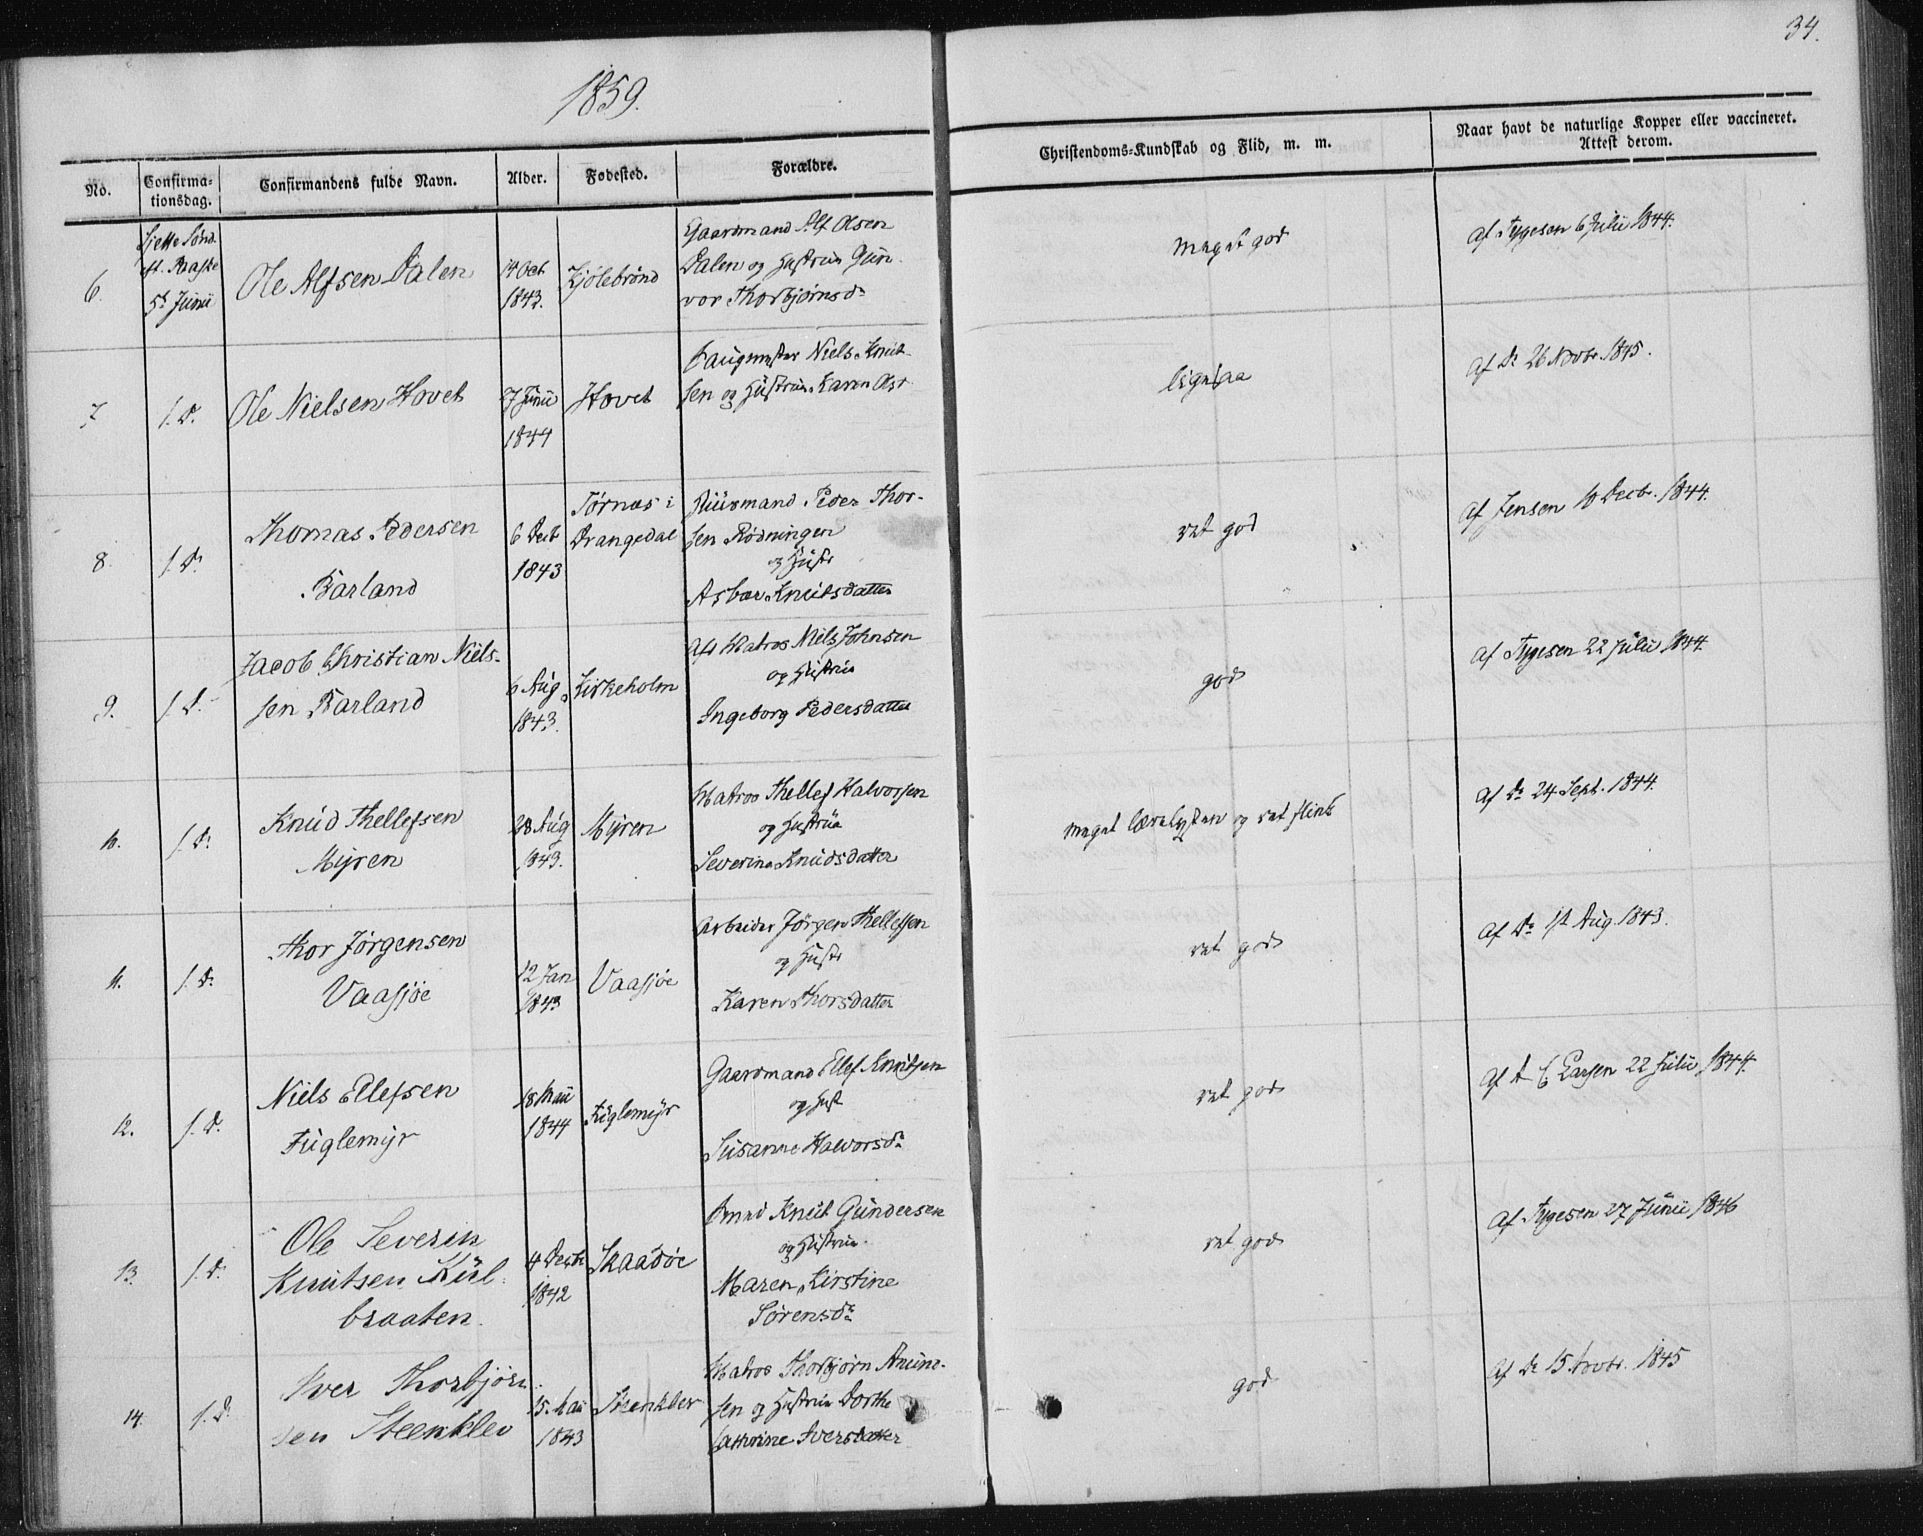 34.
1859.
No.
Confirma-
tionsdag.
Confirmandens fulde Navn.
Alder.
Fødested.
Forældre.
Christendoms-Kundskab og Flid, m. m.
Naar havt de naturlige Kopper eller vaccineret.
Attest derom.
6.
Sjette Sønd.
eft. Paaske
5t Junii
Ole Alfsen Dalen
14 Oct
1843.
Kjølebrønd
Gaardmand Alf Olsen
Dalen og Hustrue Gun-
vor Thorbjørnsdr
Meget god
Af Tygesen 6 Julii 1844.
7
s. D.
Ole Nielsen Hovet
7 Junii
1844
Hovet
Niels Knut-
sen og Hustrue Karen
ligesaa
Af Do 26 Novbr. 1845.
8.
s. D.
Thomas Pedersen
Barland
6 Decb
1843
Tørnes i
Drangedal
Huusmand Peder Thor-
sen Rødningen
og Hustr
Asbor Knutsdatter
ret god
Af Jensen 10 Decbr. 1844.
9.
s. D.
Jacob Christian Niels-
sen Barland
6 Aug
1843.
Kirkeholm
Matros Niels Johnsen
og Hustrue
Ingeborg Pedersdatter
god
Af Tygesen 22 Julii 1844.
10.
s. D.
Knud Thellefsen
Myren
28 Aug
1843.
Myren
Matros Thellef Halvorsen
og Hustrue
Severine Knudsdatter
meget lærelysten og ret flink
Af Do 24 Sept. 1844.
11.
s. D.
Thor Jørgensen
Vaasjøe
12 Jan
1843
Vaasjøe
Arbeider Jørgen Thellefsen
og Hustr
Karen Thorsdatter
ret god
Af Do 1st Aug. 1843.
12.
s. D.
Niels Ellefsen
Fuglemyr
18 Maii
1844
Fuglemyr
Gaardmand Ellef Knutsen
og Hust
Susanne Halvorsdr
ret god
Af Larsen 22 Julii 1844.
13.
s. D.
Ole Severin
Knutsen Kiil-
braaten.
4 Decbr
1842
Skaadøe
Knut Gundersen
og Hustrue.
Maren Kirstine
Sørensdr
ret god
Af Tygesen 27 Junii 1846
14.
s. D.
Iver Thorbjørn-
sen Steenklev
15 Maii
1843
Steenklev
Matros Thorbjørn Anund-
sen og Hustrue Dorthe
Cathrine Iversdatter
god
Af Do 15 Novbr. 1845